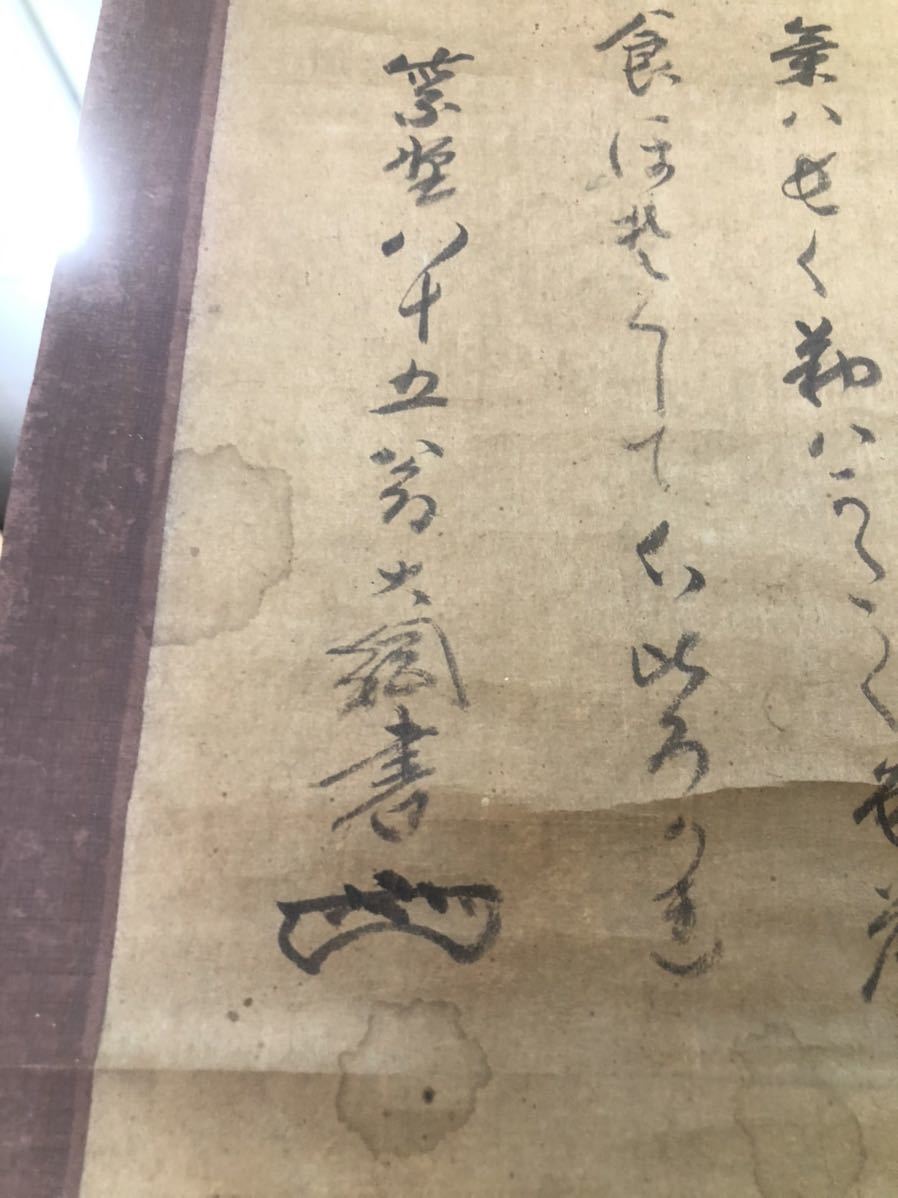 氣ハ長く勤ハかたく色
食ほそくして心ひろかれ
紫埜八十五翁大綱書